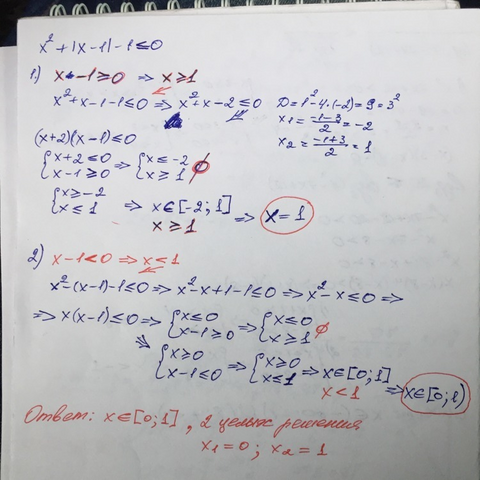 x² + |x - 1| - 1 ≤ 0
1) x - 1 ≥ 0 ⇒ x ≥ 1
x² + x - 1 - 1 ≤ 0 ⇒ x² + x - 2 ≤ 0
D = 1² - 4·(-2) = 9 = 3²
x₁ = (-1-3)/2 = -2
x₂ = (-1+3)/2 = 1
(x+2)(x-1) ≤ 0
{x + 2 ≤ 0 ⇒ {x ≤ -2
{x - 1 ≥ 0 {x ≥ 1 ∅
{x ≥ -2
{x ≤ 1 ⇒ x ∈ [-2; 1]
x ≥ 1 ⇒ x = 1
2) x - 1 < 0 ⇒ x < 1
x² - (x - 1) - 1 ≤ 0 ⇒ x² - x + 1 - 1 ≤ 0 ⇒ x² - x ≤ 0 ⇒
⇒ x(x - 1) ≤ 0 ⇒ {x ≤ 0 ⇒ {x ≤ 0
{x - 1 ≥ 0 {x ≥ 1 ∅
⇒ {x ≥ 0 ⇒ {x ≥ 0
{x - 1 ≤ 0 {x ≤ 1 ⇒ x ∈ [0; 1]
x < 1 ⇒ x ∈ [0; 1)
Ответ: x ∈ [0; 1], 2 целых решения
x₁ = 0; x₂ = 1